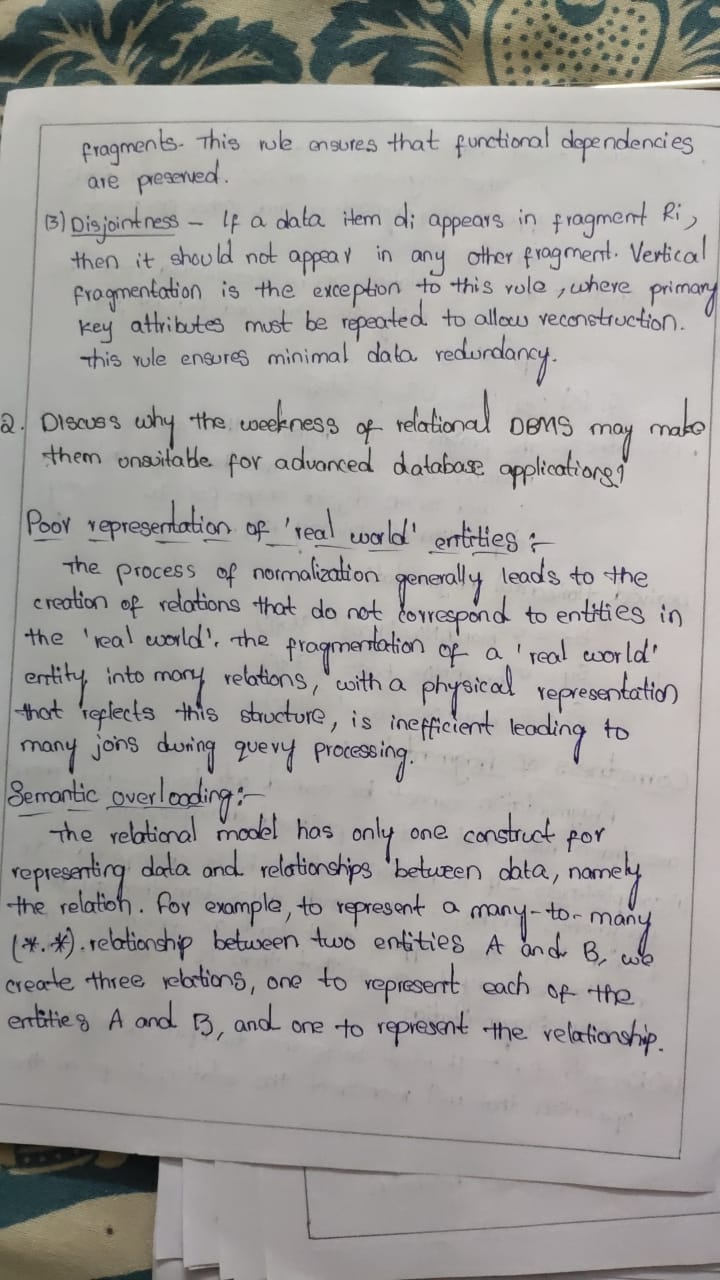 fragments. This rule ensures that functional dependencies
are preserved.
(3) Disjointness – If a data item di appears in fragment Ri,
then it should not appear in any other fragment. Vertical
fragmentation is the exception to this rule, where primary
key attributes must be repeated to allow reconstruction.
This rule ensures minimal data redundancy.
2. Discuss why the weekness of relational DBMS may make
them unsuitable for advanced database applications?
Poor representation of 'real world' entities :-
The process of normalization generally leads to the
creation of relations that do not correspond to entities in
the 'real world'. The fragmentation of a 'real world'
entity into many relations, with a physical representation
that reflects this structure, is inefficient leading to
many joins during query processing.
Semantic overloading:-
The relational model has only one construct for
representing data and relationships between data, namely
the relation. For example, to represent a many-to-many
(*.*) relationship between two entities A and B, we
create three relations, one to represent each of the
entities A and B, and one to represent the relationship.